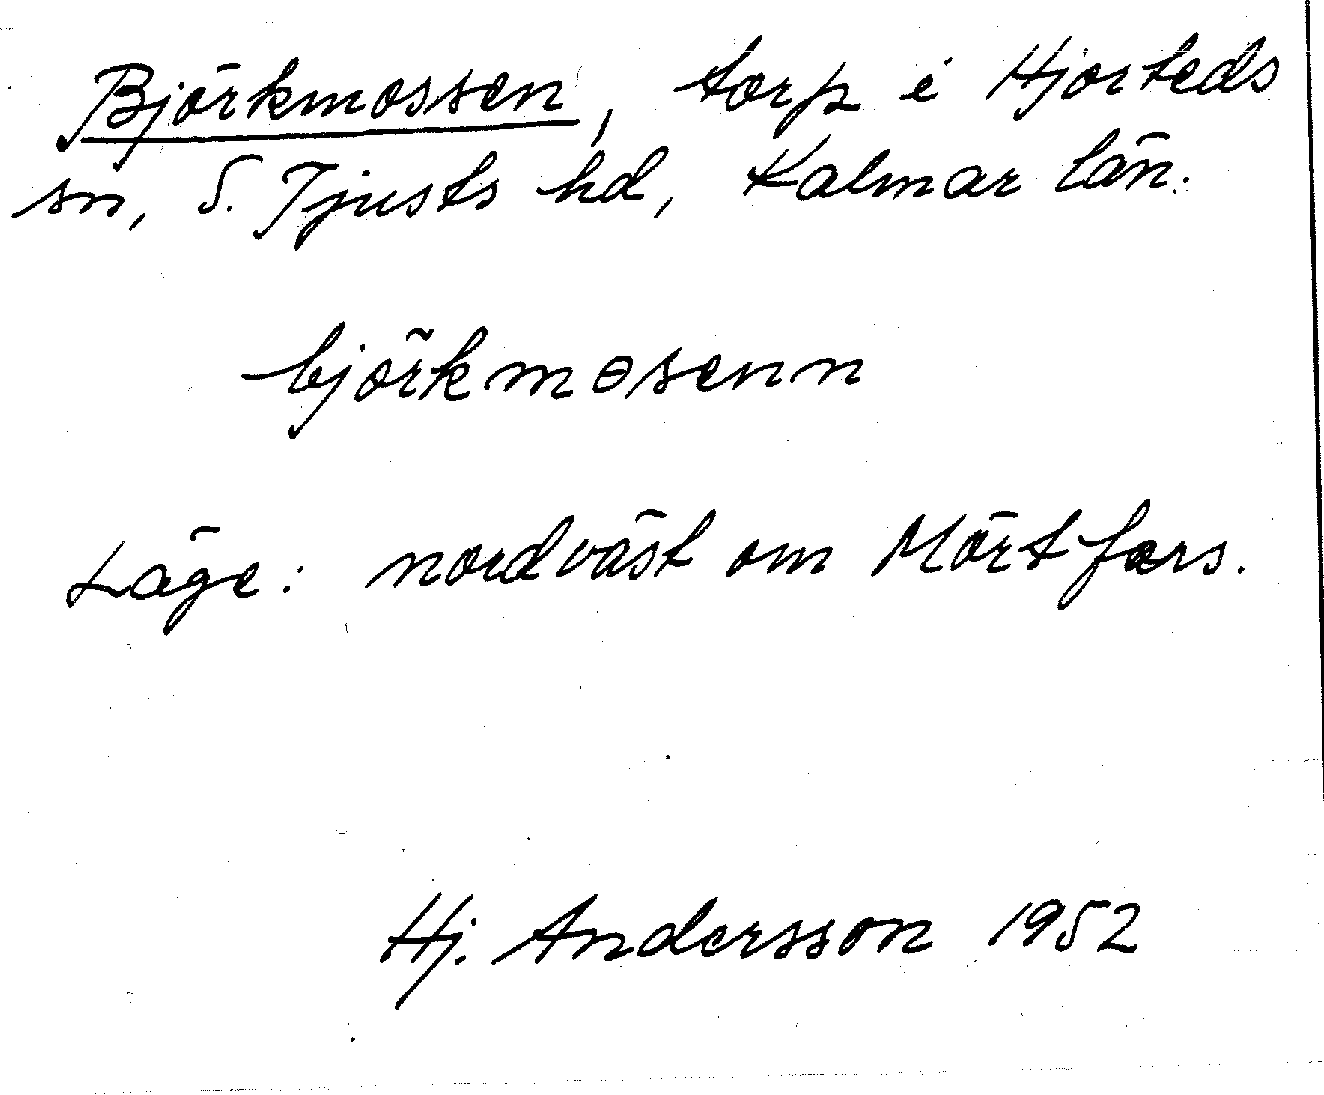 Björkmossen, torp i Hjorteds
sn, S. Tjusts hd, Kalmar län.
björkmɵsenn
Läge: nordväst om Mörtfors.
Hj. Andersson 1952